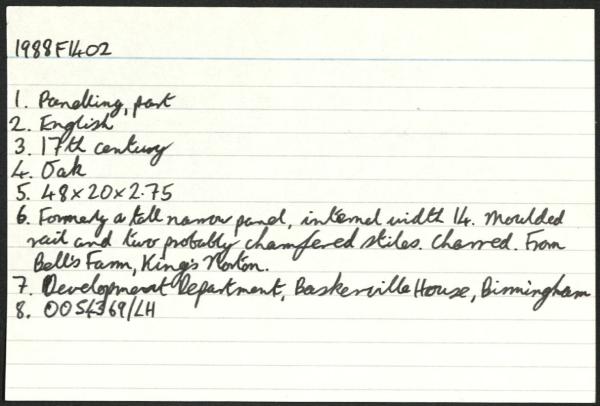 1988F1402
1. Panelling, part
2. English
3. 17th century
4. Oak
5. 48 x 20 x 2.75
6. Formerly a tall narrow panel, internal width 14. Moulded
rail and two probably chamfered stiles. Charred. From
Bell's Farm, King's Norton.
7. Development Department, Baskerville House, Birmingham
8. 0054369/LH